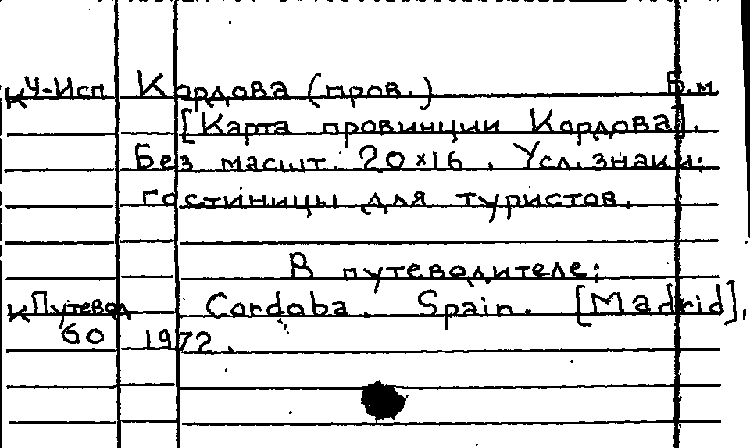 К Ч-Исп Кордова (пров.) Б.м
[Карта провинции Кордова].
Без масшт. 20×16. Усл. знаки:
гостиницы для туристов.
В путеводителе:
К Путевод Cordoba. Spain. [Madrid],
60 1972.